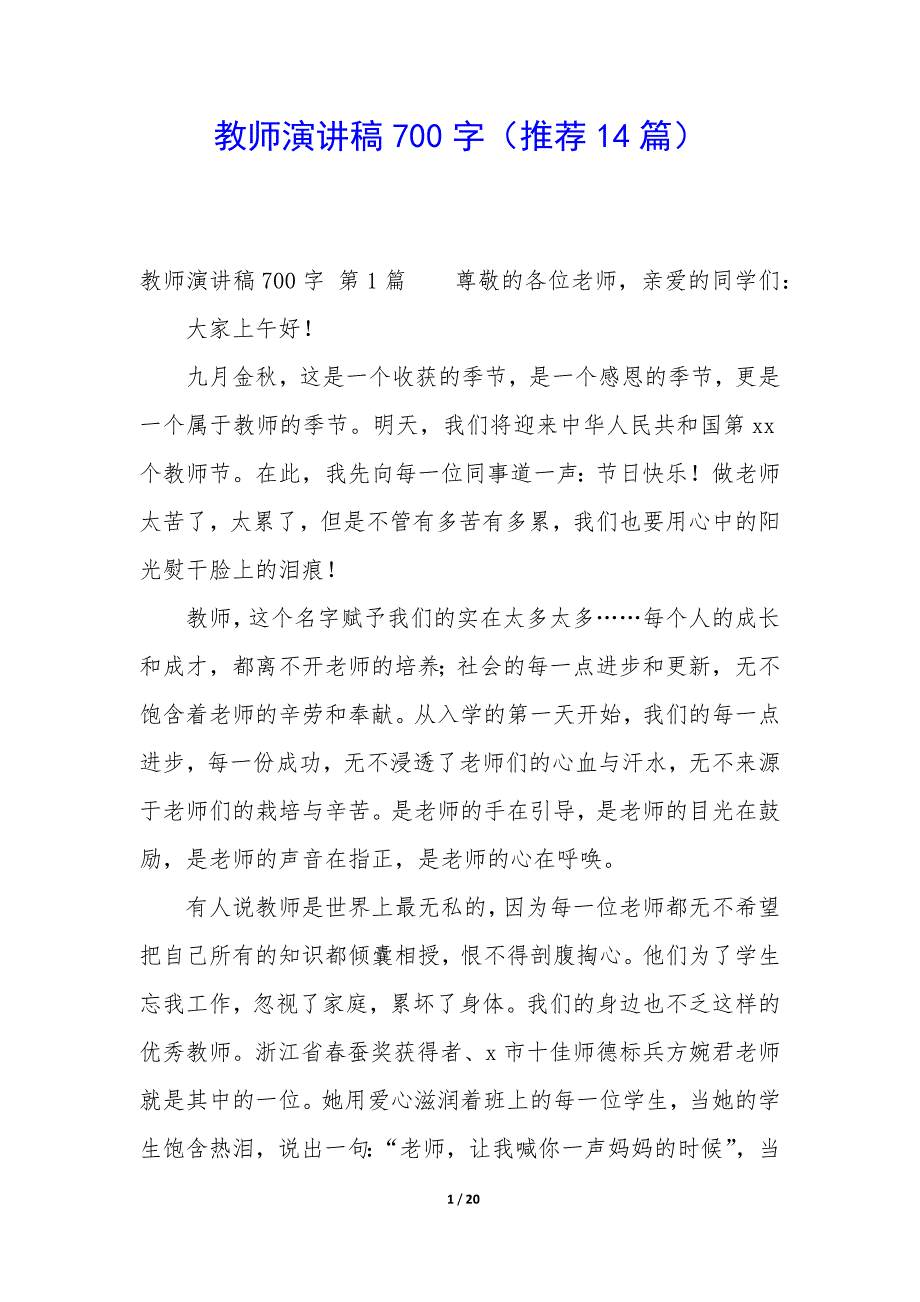 教师演讲稿700字（推荐14篇）
教师演讲稿700字 第1篇　　尊敬的各位老师，亲爱的同学们：
大家上午好！
九月金秋，这是一个收获的季节，是一个感恩的季节，更是
一个属于教师的季节。明天，我们将迎来中华人民共和国第xx
个教师节。在此，我先向每一位同事道一声：节日快乐！做老师
太苦了，太累了，但是不管有多苦有多累，我们也要用心中的阳
光熨干脸上的泪痕！
教师，这个名字赋予我们的实在太多太多……每个人的成长
和成才，都离不开老师的培养；社会的每一点进步和更新，无不
饱含着老师的辛劳和奉献。从入学的第一天开始，我们的每一点
进步，每一份成功，无不浸透了老师们的心血与汗水，无不来源
于老师们的栽培与辛苦。是老师的手在引导，是老师的目光在鼓
励，是老师的声音在指正，是老师的心在呼唤。
有人说教师是世界上最无私的，因为每一位老师都无不希望
把自己所有的知识都倾囊相授，恨不得剖腹掏心。他们为了学生
忘我工作，忽视了家庭，累坏了身体。我们的身边也不乏这样的
优秀教师。浙江省春蚕奖获得者、x市十佳师德标兵方婉君老师
就是其中的一位。她用爱心滋润着班上的每一位学生，当她的学
生饱含热泪，说出一句：“老师，让我喊你一声妈妈的时候”，当
1 / 20